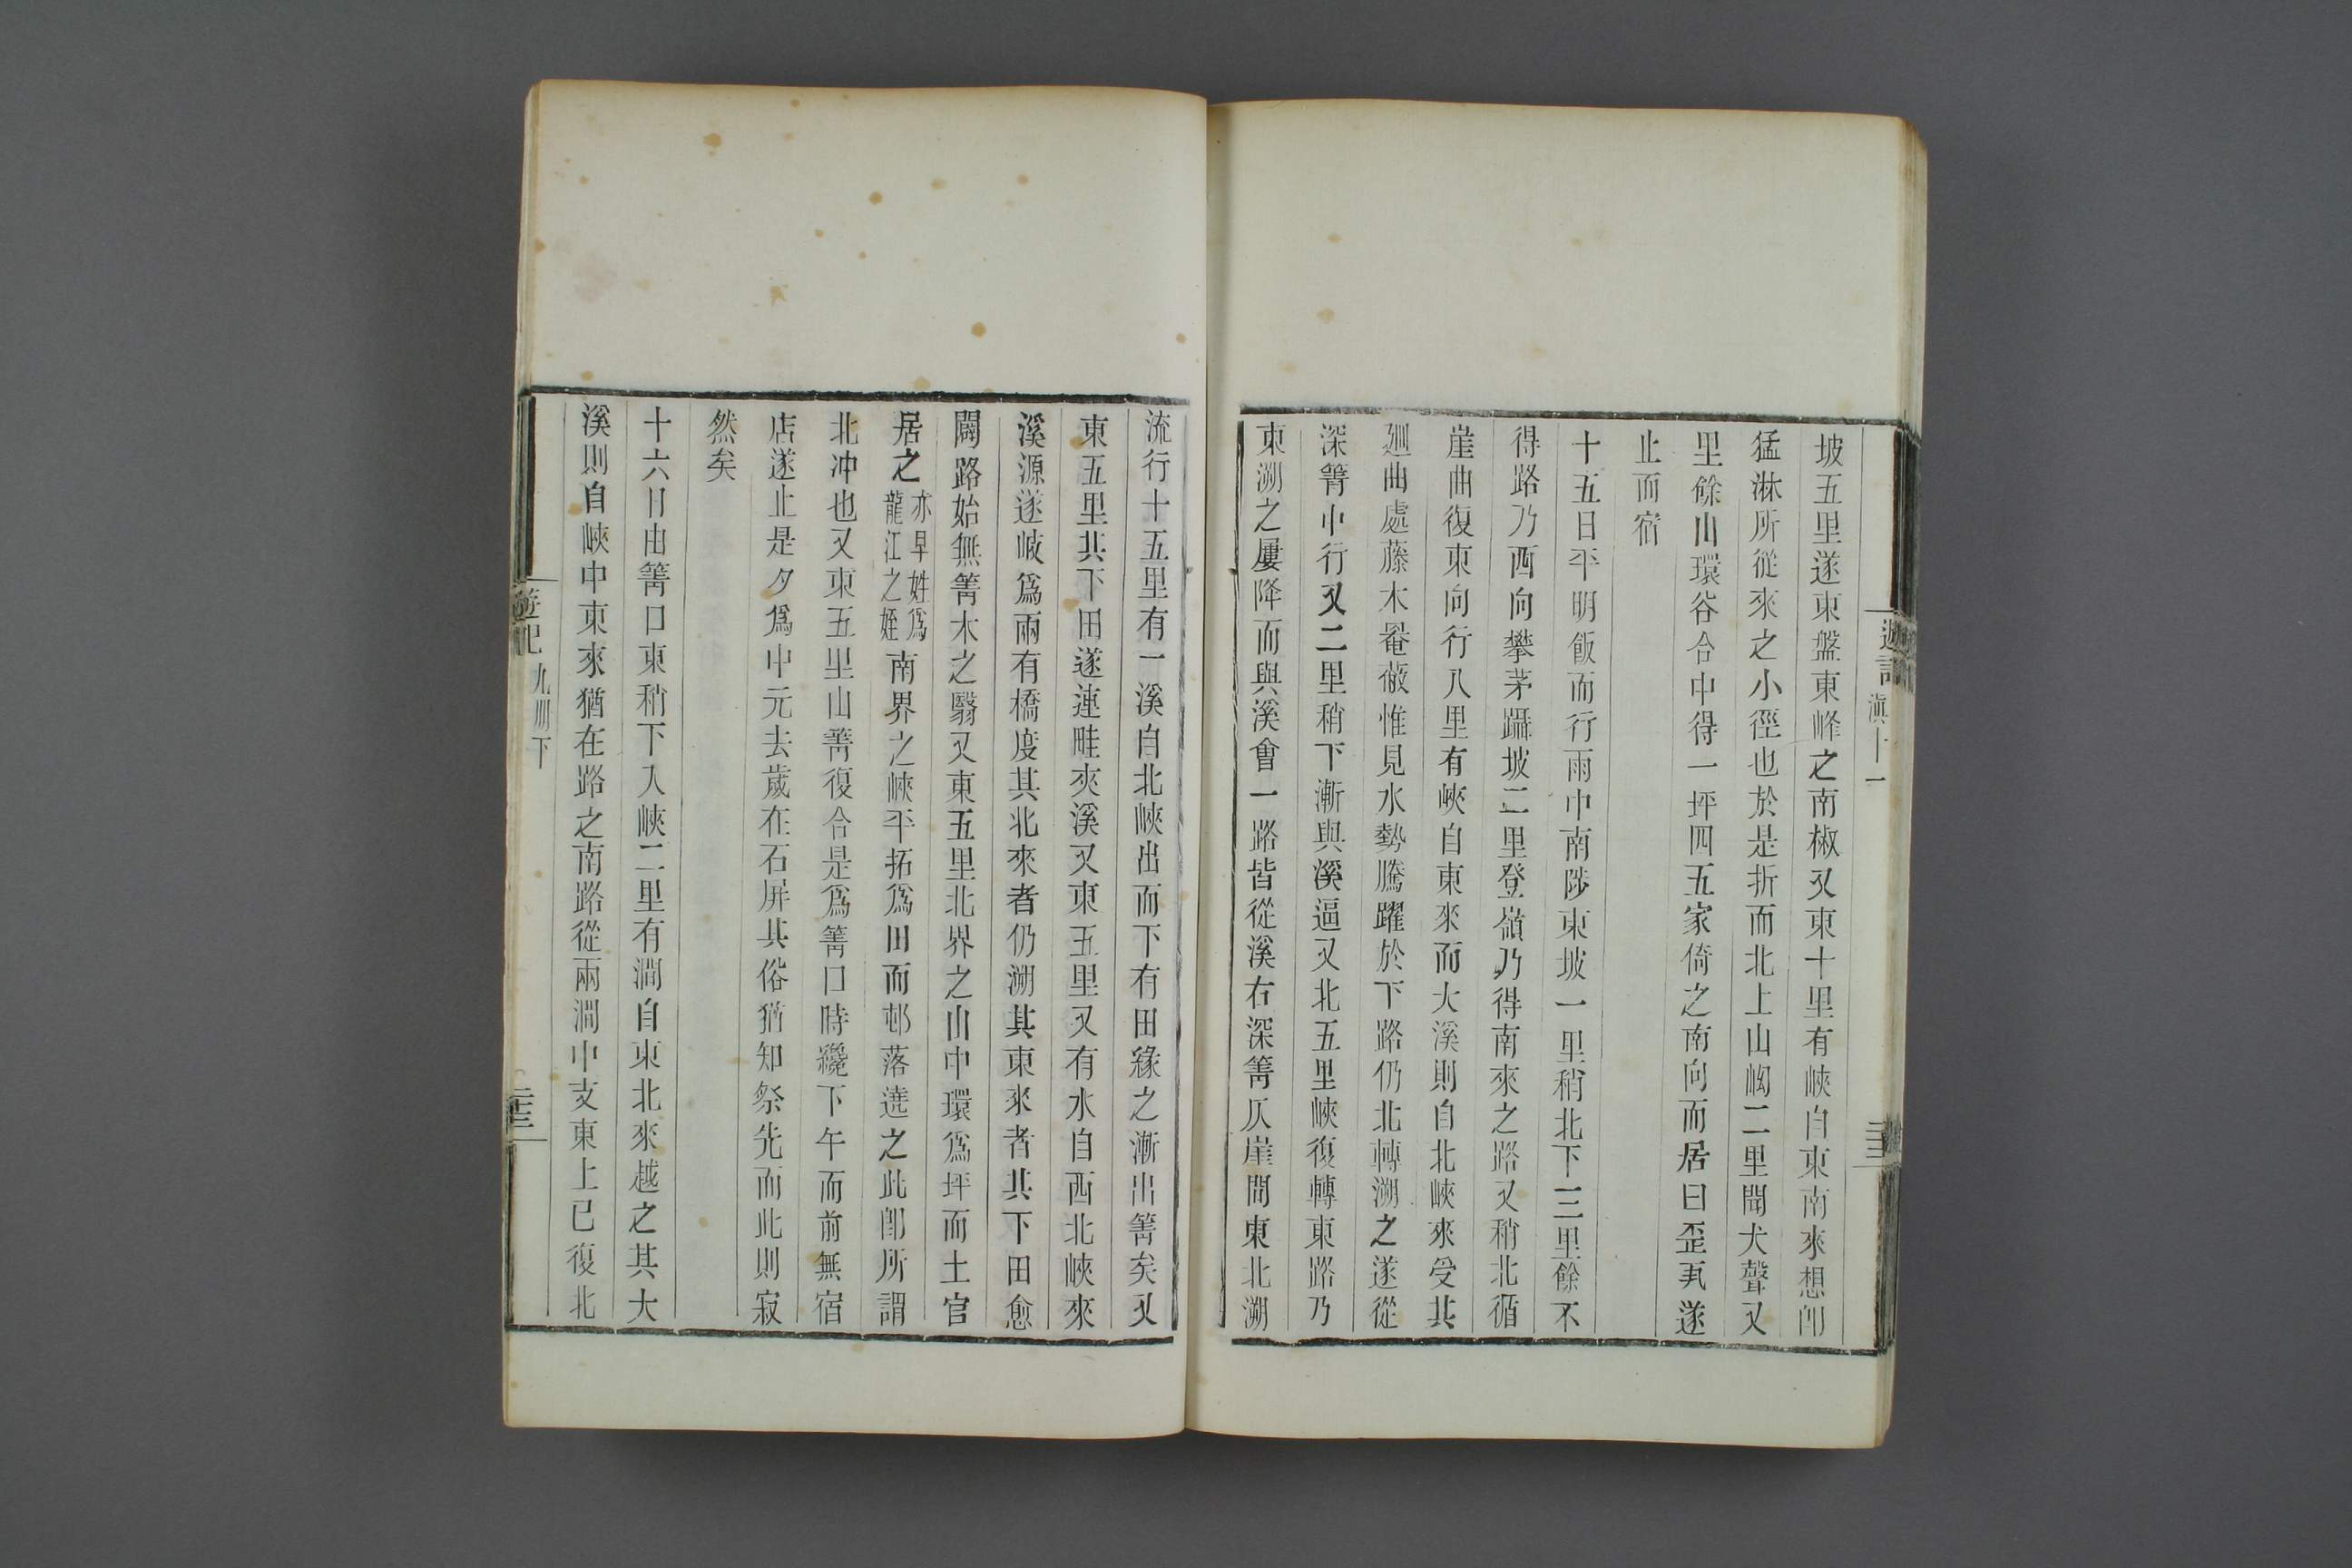 遊記 滇十一
坡五里遂東盤東峰之南椒又東十里有峽自東南來想卽
猛淋所從來之小徑也於是折而北上山崦二里聞犬聲又
里餘山環谷合中得一坪四五家倚之南向而居曰歪瓦遂
止而宿
十五日平明飯而行雨中南陟東坡一里稍北下三里餘不
得路乃西向攀茅躡坡二里登嶺乃得南來之路又稍北循
崖曲復東向行八里有峽自東來而大溪則自北峽來受其
廻曲處藤木罨蔽惟見水勢騰躍於下路仍北轉溯之遂從
深箐中行又二里稍下漸與溪逼又北五里峽復轉東路乃
東溯之屢降而與溪會一路皆從溪右深箐仄崖間東北溯
流行十五里有一溪自北峽出而下有田緣之漸出箐矣又
東五里其下田遂連畦夾溪又東五里又有水自西北峽來
溪源遂岐爲兩有橋度其北來者仍溯其東來者其下田愈
闢路始無箐木之翳又東五里北界之山中環爲坪而土官
居之亦早姓爲龍江之姪南界之峽平拓爲田而邨落遶之此卽所謂
北冲也又東五里山箐復合是爲箐口時纔下午而前無宿
店遂止是夕爲中元去歲在石屏其俗猶知祭先而此則寂
然矣
十六日由箐口東稍下入峽二里有澗自東北來越之其大
溪則自峽中東來猶在路之南路從兩澗中支東上已復北
遊記 九冊下